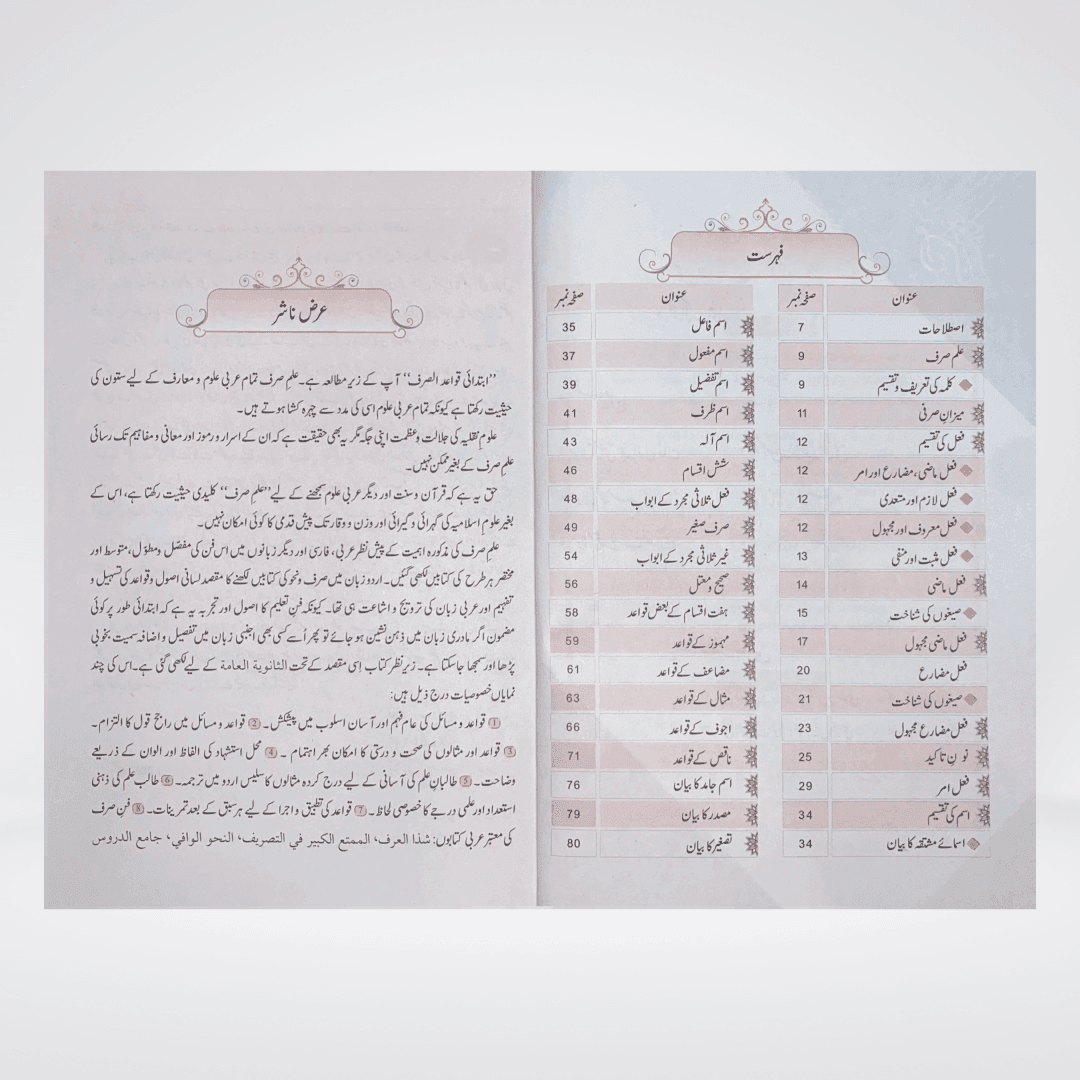 فہرست
عنوان صفحہ نمبر
اصطلاحات 7
علم صرف 9
کلمہ کی تعریف و تقسیم 9
میزانِ صرفی 11
فعل کی تقسیم 12
فعل ماضی، مضارع اور امر 12
فعل لازم اور متعدی 12
فعل معروف اور مجہول 12
فعل مثبت اور منفی 13
فعل ماضی 14
صیغوں کی شناخت 15
فعل ماضی مجہول 17
فعل مضارع 20
صیغوں کی شناخت 21
فعل مضارع مجہول 23
نونِ تاکید 25
فعل امر 29
اسم کی تقسیم 34
اسمائے مشتقہ کا بیان 34
عنوان صفحہ نمبر
اسم فاعل 35
اسم مفعول 37
اسم تفضیل 39
اسم ظرف 41
اسم آلہ 43
شش اقسام 46
فعل ثلاثی مجرد کے ابواب 48
صرف صغیر 49
غیر ثلاثی مجرد کے ابواب 54
صحیح و معتل 56
ہفت اقسام کے بعض قواعد 58
مہموز کے قواعد 59
مضاعف کے قواعد 61
مثال کے قواعد 63
اجوف کے قواعد 66
ناقص کے قواعد 71
اسم جامد کا بیان 76
مصدر کا بیان 79
تصغیر کا بیان 80
عرض ناشر
”ابتدائی قواعد الصرف“ آپ کے زیر مطالعہ ہے۔ علم صرف تمام عربی علوم و معارف کے لیے ستون کی
حیثیت رکھتا ہے کیونکہ تمام عربی علوم اسی کی مدد سے چہرہ کشا ہوتے ہیں۔
علومِ نقلیہ کی جلالت و عظمت اپنی جگہ مگر یہ بھی حقیقت ہے کہ ان کے اسرار و رموز اور معانی و مفاہیم تک رسائی
علمِ صرف کے بغیر ممکن نہیں۔
حق یہ ہے کہ قرآن و سنت اور دیگر عربی علوم سمجھنے کے لیے ”علمِ صرف“ کلیدی حیثیت رکھتا ہے، اس کے
بغیر علومِ اسلامیہ کی گہرائی و گیرائی اور وزن و وقار تک پیش قدمی کا کوئی امکان نہیں۔
علمِ صرف کی مذکورہ اہمیت کے پیش نظر عربی، فارسی اور دیگر زبانوں میں اس فن کی مفصل و مطول، متوسط اور
مختصر ہر طرح کی کتابیں لکھی گئیں۔ اردو زبان میں صرف و نحو کی کتابیں لکھنے کا مقصد لسانی اصول و قواعد کی تسہیل و
تفہیم اور عربی زبان کی ترویج و اشاعت ہی تھا۔ کیونکہ فنِ تعلیم کا اصول اور تجربہ یہ ہے کہ ابتدائی طور پر کوئی
مضمون اگر مادری زبان میں ذہن نشین ہو جائے تو پھر اُسے کسی بھی اجنبی زبان میں تفصیل و اضافہ سمیت بخوبی
پڑھا اور سمجھا جاسکتا ہے۔ زیر نظر کتاب اِسی مقصد کے تحت الثانوية العامة کے لیے لکھی گئی ہے۔ اس کی چند
نمایاں خصوصیات درج ذیل ہیں:
① قواعد و مسائل کی عام فہم اور آسان اسلوب میں پیشکش۔ ② قواعد و مسائل میں راجح قول کا التزام۔
③ قواعد اور مثالوں کی صحت و درستی کا امکان بھر اہتمام۔ ④ محل استشہاد کی الفاظ اور الوان کے ذریعے
وضاحت۔ ⑤ طالبانِ علم کی آسانی کے لیے درج کردہ مثالوں کا سلیس اردو میں ترجمہ۔ ⑥ طالب علم کی ذہنی
استعداد اور علمی درجے کا خصوصی لحاظ۔ ⑦ قواعد کی تطبیق و اجرا کے لیے ہر سبق کے بعد تمرینات۔ ⑧ فنِ صرف
کی معتبر عربی کتابوں: شذا العرف، الممتع الكبير في التصريف، النحو الوافي، جامع الدروس